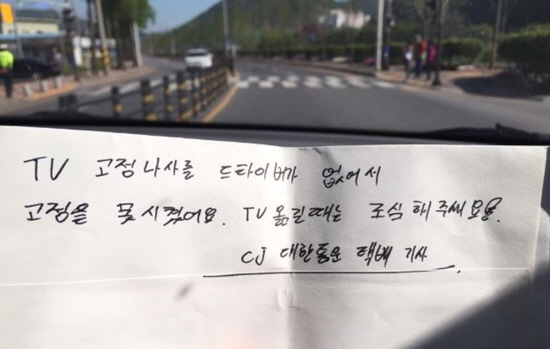 TV 고정나사를 드타이버가 없어서
고정을 못시켰어요. TV 옮길때는 조심해주세요.
CJ 대한통운 택배 기사